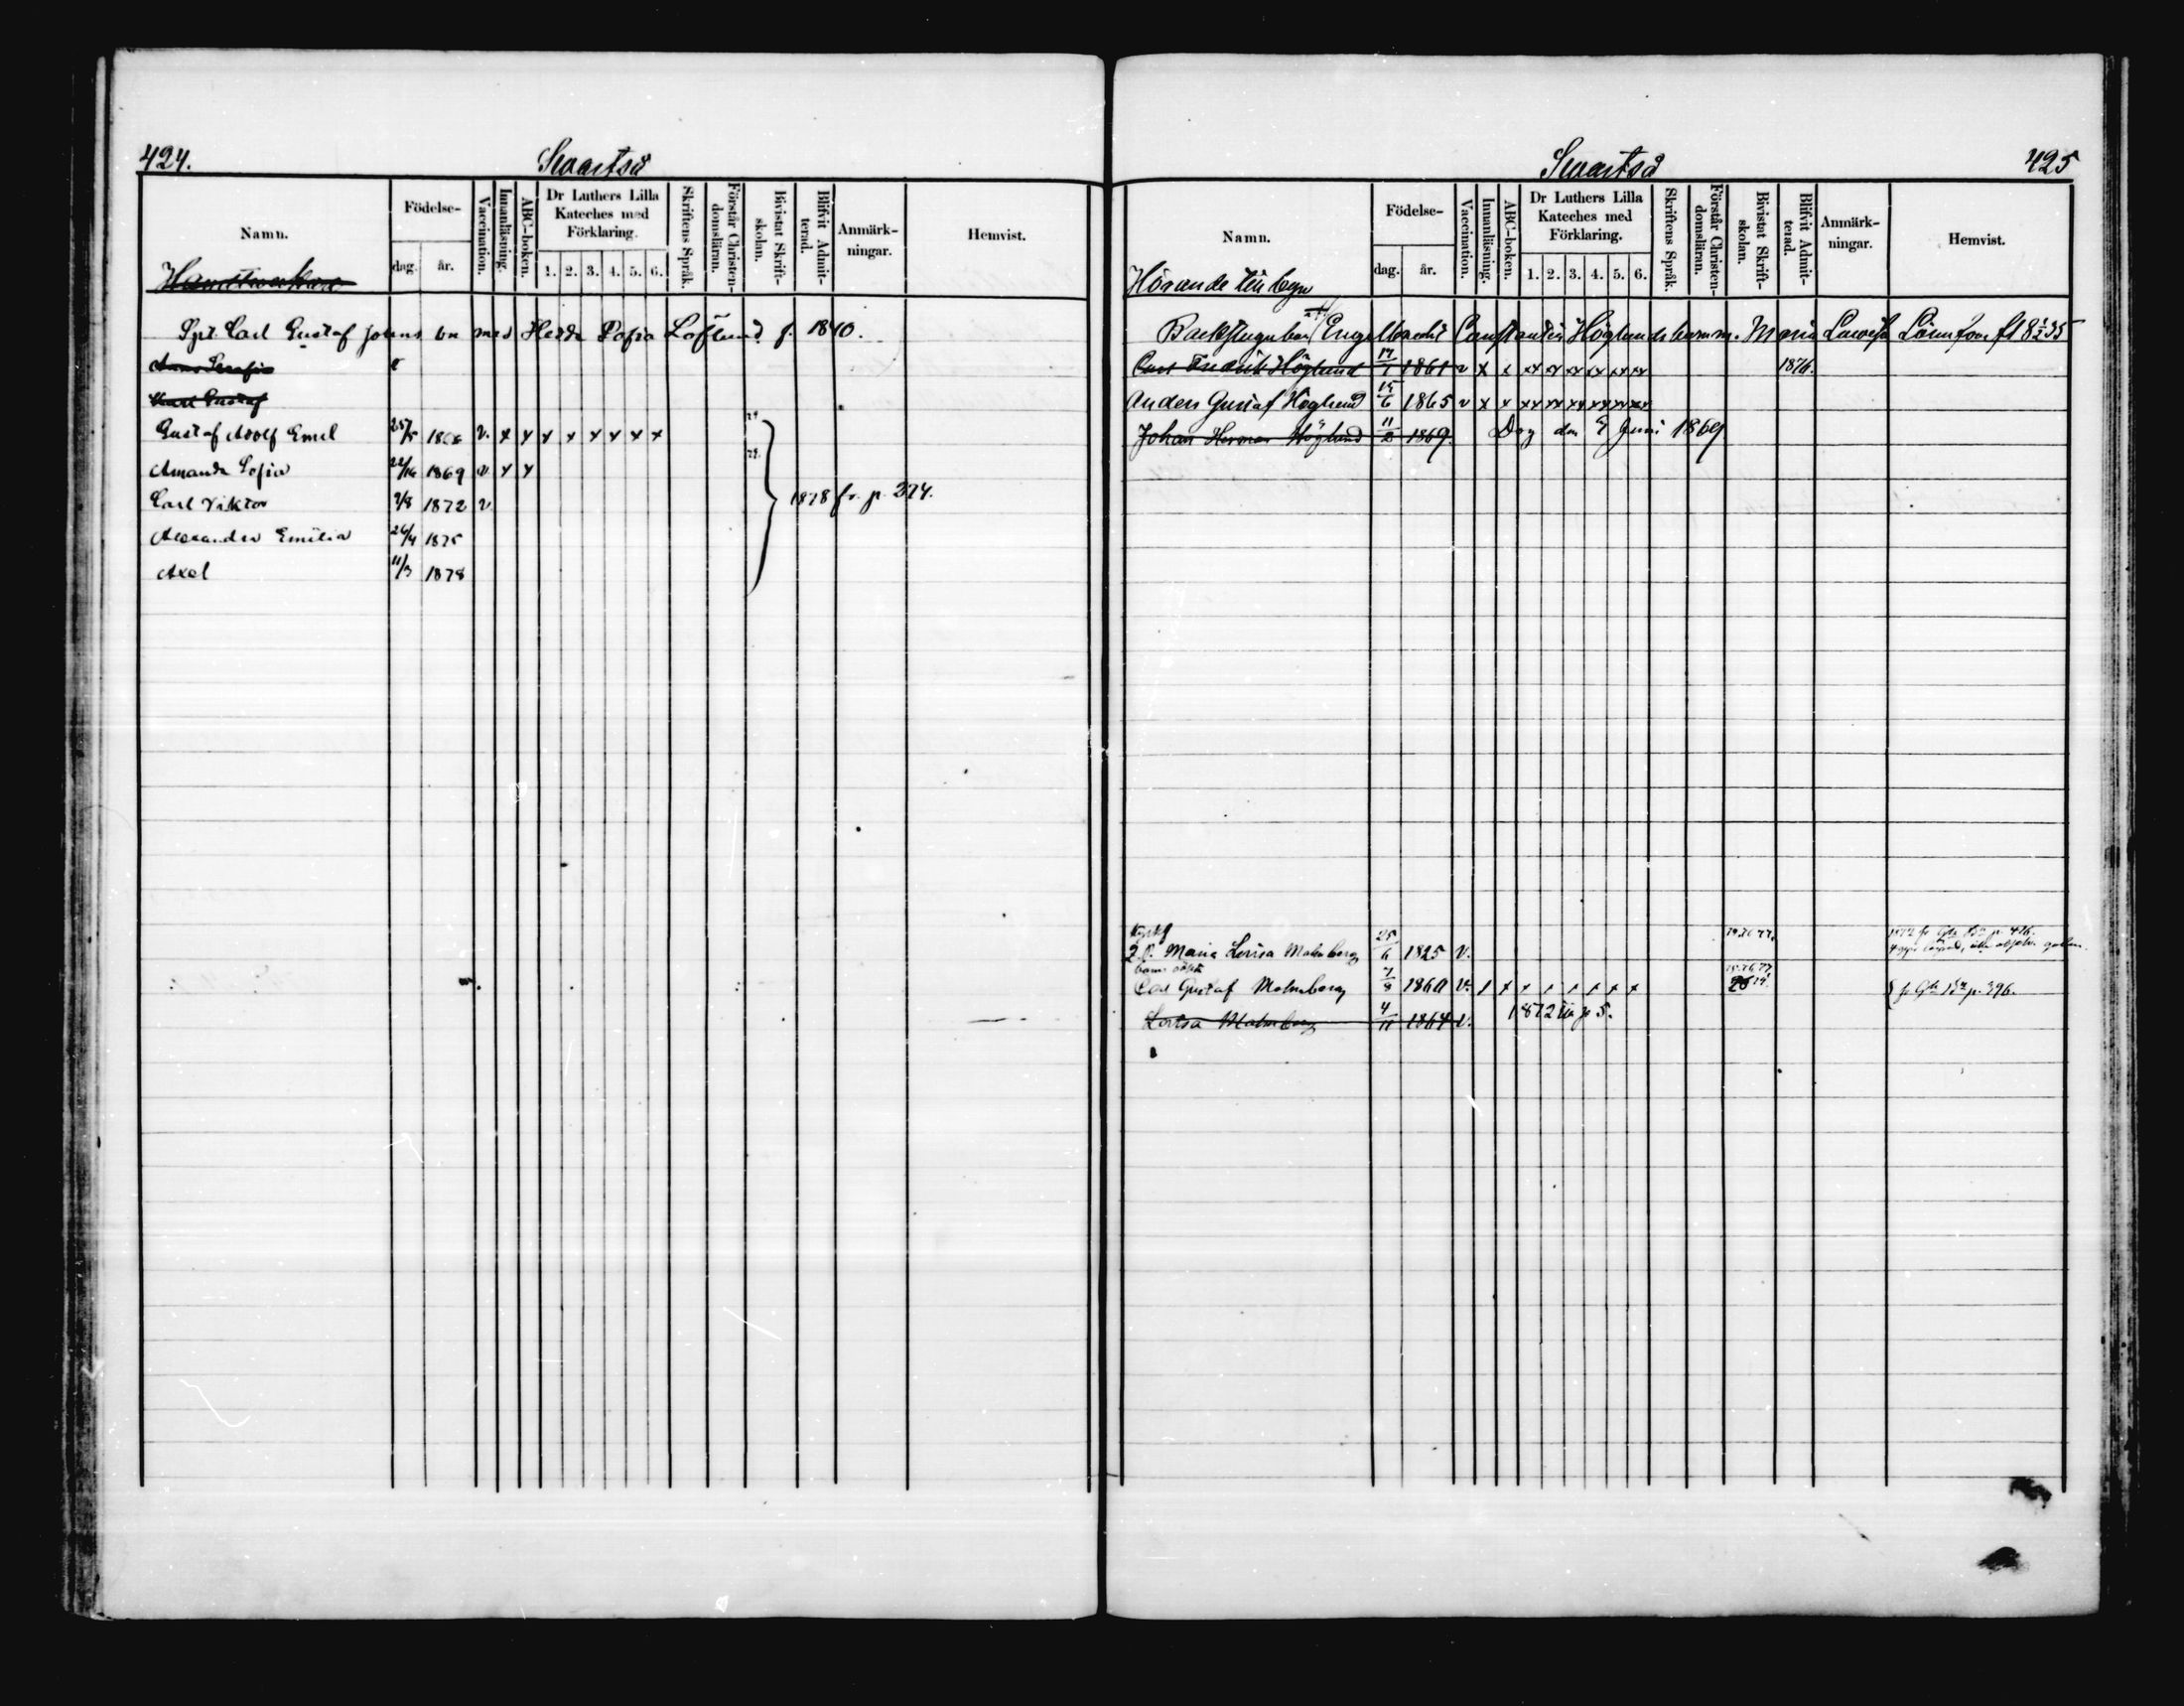 424.
Svartså
Namn.
Födelse-
dag.
år.
Vaccination.
Innanläsning.
ABC-boken.
Dr Luthers Lilla
Kateches med
Förklaring.
1. 2. 3. 4. 5. 6.
Skriftens Språk.
Förstår Christen-
domsläran.
Bivistat Skrift-
skolan.
Blifvit Admit-
terad.
Anmärk-
ningar.
Hemvist.
Carl Gustaf Johns bn med Hedda Sofia Löflund f. 1840.
Gustaf Adolf Emil 25/5 v. x x x x x x x x
Amanda Sofia 1869 v x x
Carl Viktor 9/8 1872 v
1878 fr. p. 374.
Alexandra Emilia 26/4 1875
Axel 11/3 1878
Svartså
425
Namn.
Födelse-
dag.
år.
Vaccination.
Innanläsning.
ABC-boken.
Dr Luthers Lilla
Kateches med
Förklaring.
1. 2. 3. 4. 5. 6.
Skriftens Språk.
Förstår Christen-
domsläran.
Bivistat Skrift-
skolan.
Blifvit Admit-
terad.
Anmärk-
ningar.
Hemvist.
Hörande till byn
Engelbrecht Constantin Höglunds barn m. Maria Lovisa
Fredrik Höglund 17/1 1861 v x x xx xx xx xx xx xx 1876.
Anders Gustaf Höglund 15/6 1865 v x x xx xx xx xx xx xx
Johan Herman Höglund 11/2 1869. Dog den 9 Juni 1869
Maria Lovisa Malmberg 25/6 1825 v.
Carl Gustaf Malmberg 7/8 1860 v. p. 396.
Lovisa Malmberg 4/11 1864 v. 1872 p 5.